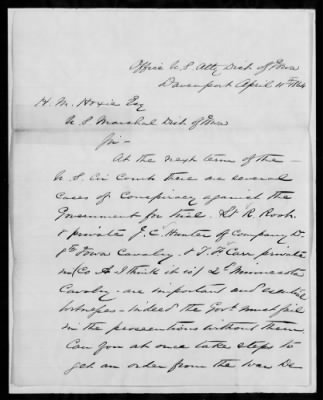 Office U S Atty Dist of Iowa
Davenport April 11th 1864
H. M. Hoxie Esq
U S Marshal Dist of Iowa
Sir-
At the next term of the
U. S. Cir Court there are several
cases of Conspiracy against the
Government for trial. Lt R. Root
& private J. C. Hunter of Company D.
8th Iowa Cavalry. & T. F. Carr private
in (Co A I think it is) 2d Minnesota
Cavalry - are important and essential
witnesses - indeed the Govt must fail
in the prosecutions without them.
Can you at once take steps to
get an order from the War De